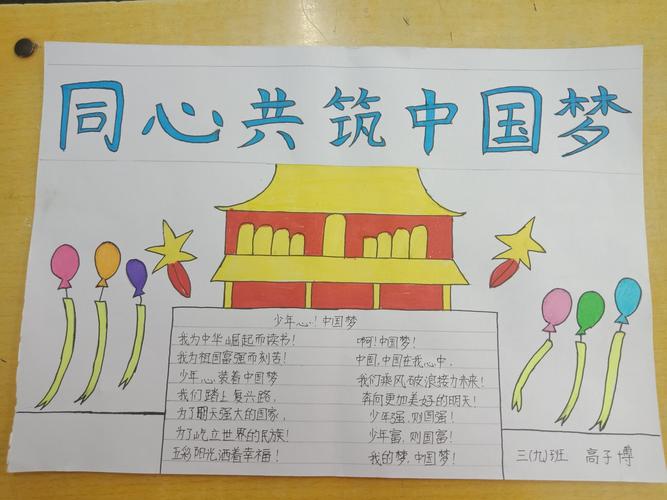 同心共筑中国梦
少年心!中国梦
我为中华崛起而读书!
我为祖国富强而刻苦!
少年心,装着中国梦
我们踏上复兴路,
为了天强大的国家,
为了屹立世界的民族!
五彩阳光洒着幸福!
啊!中国梦!
中国,中国在我心中,
我们乘风破浪接力未来!
奔向更加美好的明天!
少年强,则国强!
少年富,则国富!
我的梦,中国梦!
三(九)班 高子博